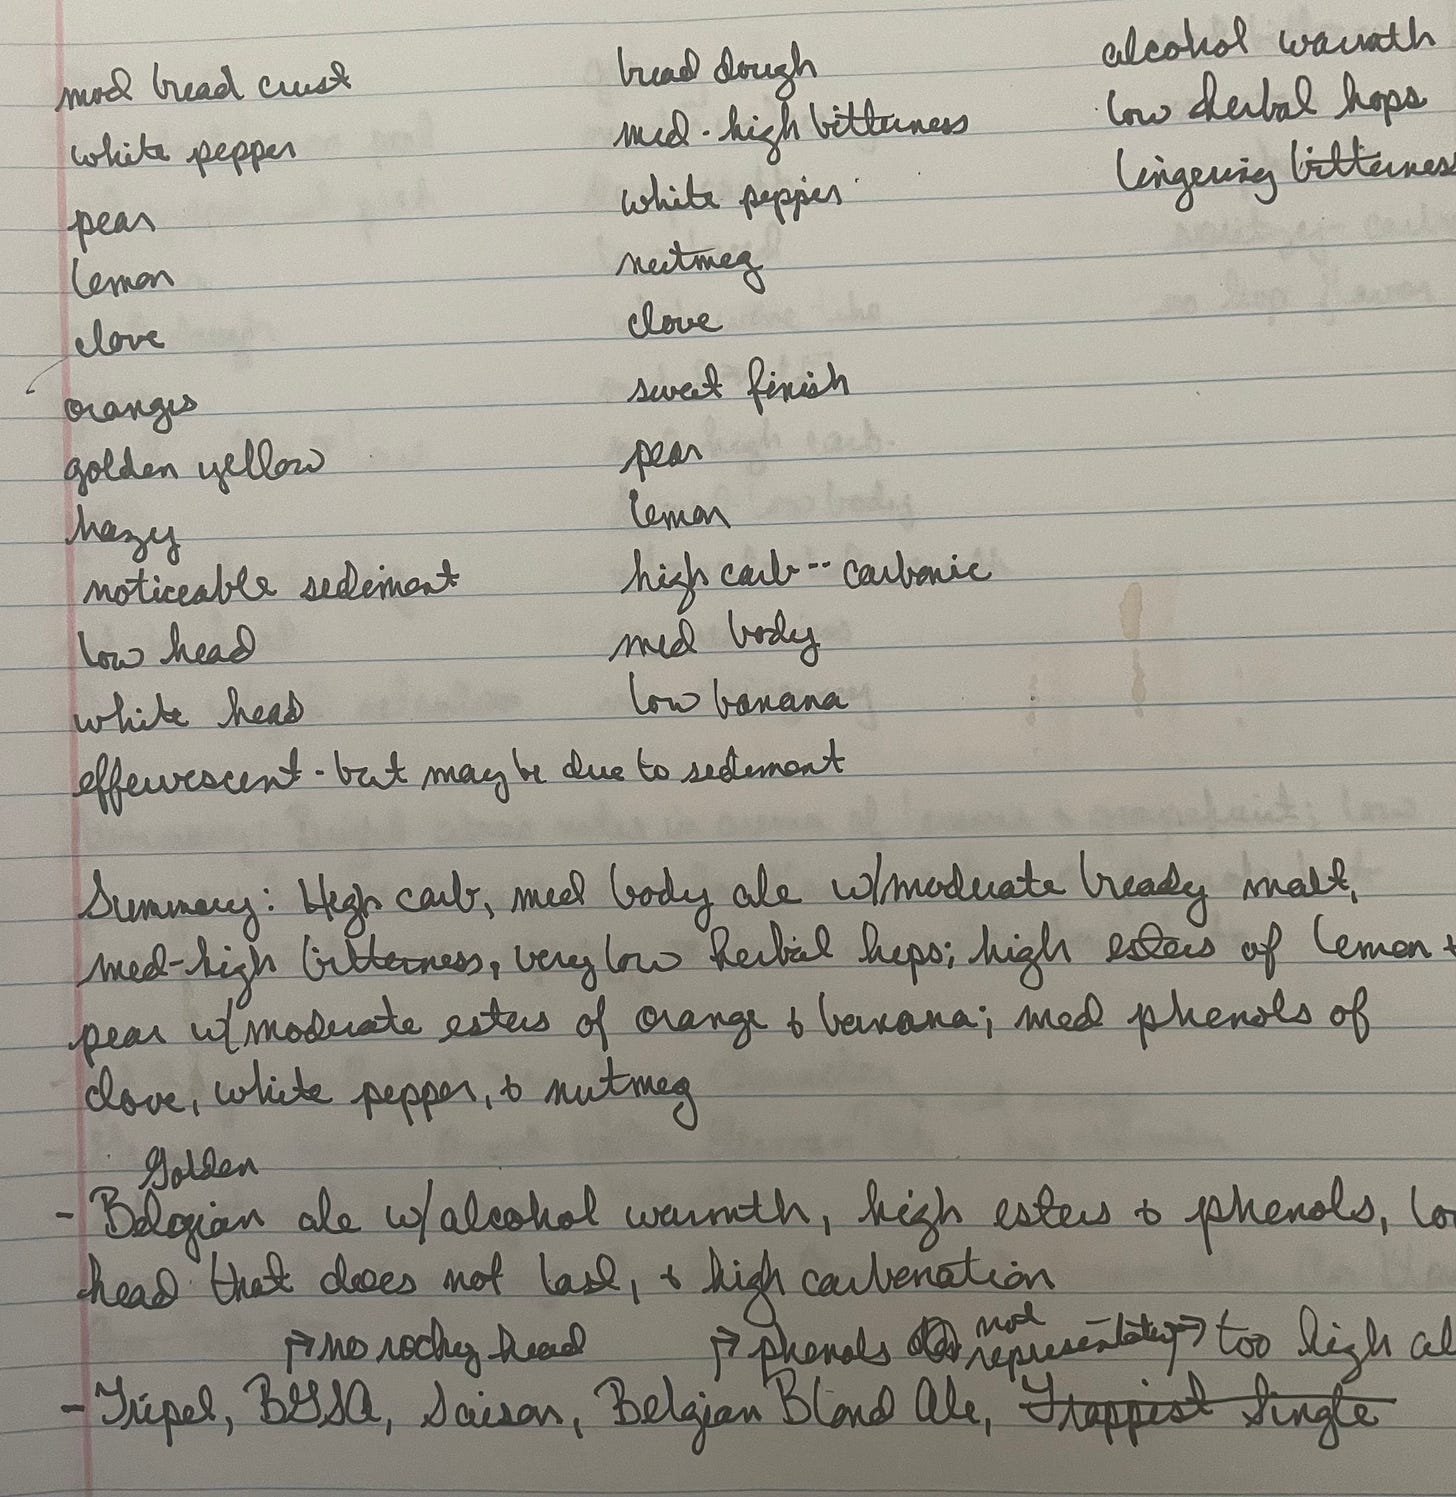 mod bread crust
white pepper
pear
lemon
clove
oranges
golden yellow
hazy
noticeable sediment
low head
white head
effervescent - but may be due to sediment
bread dough
med - high bitterness
white pepper
nutmeg
clove
sweet finish
pear
lemon
high carb -- carbonic
med body
low banana
alcohol warmth
low herbal hops
lingering bitterness
Summary: High carb, med body ale w/moderate bready malt,
med-high bitterness, very low herbal hops; high esters of lemon &
pear w/moderate esters of orange & banana; med phenols of
clove, white pepper, & nutmeg
Golden
- Belgian ale w/alcohol warmth, high esters & phenols,
head that does not last, & high carbonation
→ no rocky head → phenols not representative → too high
- Tripel, BGSA, Saison, Belgian Blond Ale, Trappist Single